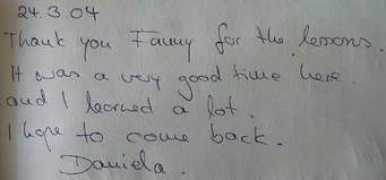 24.3.04
Thank you Fanny for the lessons.
It was a very good time here.
and I learned a lot.
I hope to come back.
Daniela.